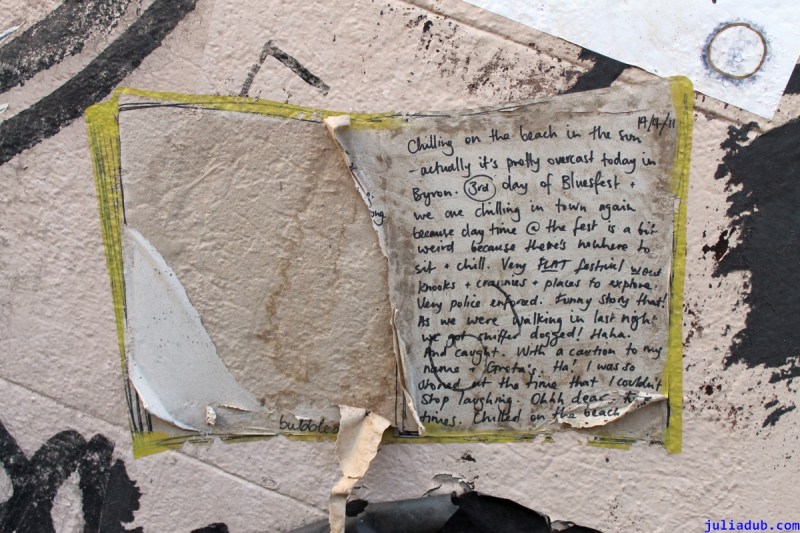 19/4/11
Chilling on the beach in the sun
- actually it's pretty overcast today in
Byron. 3rd day of Bluesfest +
we are chilling in town again
because day time @ the fest is a bit
weird because there's nowhere to
sit + chill. Very FLAT festival
knooks + crannies + places to explore.
Very police enforced. Funny story that!
As we were walking in last night
we got sniffer dogged! Haha.
And caught. With a caution to my
name + Greta's. Ha! I was so
stoned at the time that I couldn't
stop laughing. Ohhh dear
times. Chilled on the beach
bubbles
juliadub.com